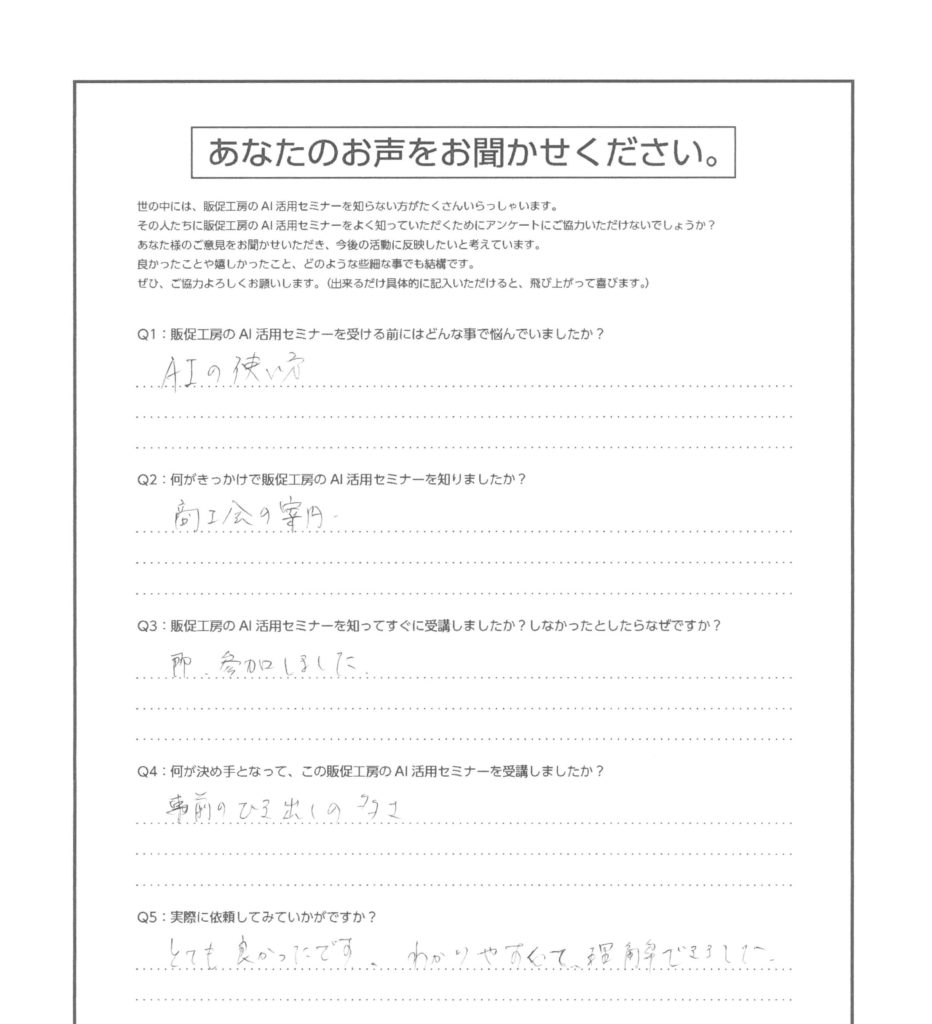 あなたのお声をお聞かせください。
世の中には、販促工房のAI活用セミナーを知らない方がたくさんいらっしゃいます。
その人たちに販促工房のAI活用セミナーをよく知っていただくためにアンケートにご協力いただけないでしょうか？
あなた様のご意見をお聞かせいただき、今後の活動に反映したいと考えています。
良かったことや嬉しかったこと、どのような些細な事でも結構です。
ぜひ、ご協力よろしくお願いします。（出来るだけ具体的に記入いただけると、飛び上がって喜びます。）
Q1：販促工房のAI活用セミナーを受ける前にはどんな事で悩んでいましたか？
AIの使い方
Q2：何がきっかけで販促工房のAI活用セミナーを知りましたか？
商工会の案内.
Q3：販促工房のAI活用セミナーを知ってすぐに受講しましたか？しなかったとしたらなぜですか？
即、参加しました.
Q4：何が決め手となって、この販促工房のAI活用セミナーを受講しましたか？
事前のひき出しの多さ
Q5：実際に依頼してみていかがですか？
とても良かったです、わかりやすくて、理解できました.